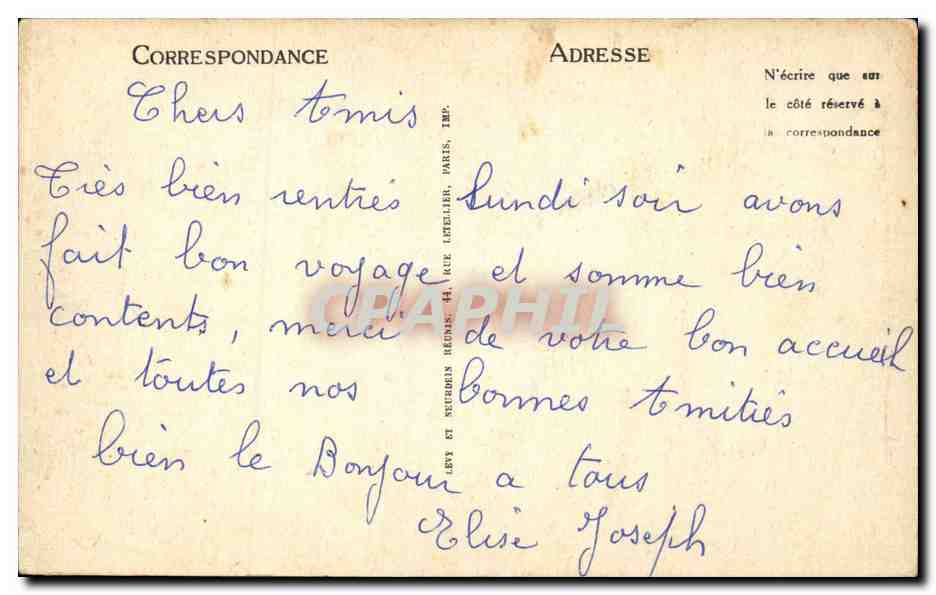 CORRESPONDANCE
ADRESSE
N'écrire que sur
le côté réservé à
la correspondance
Chers Amis
Très bien rentrés Lundi soir avons
fait bon voyage et somme bien
contents, merci de votre bon accueil
et toutes nos bonnes Amitiés
bien le Bonjour a tous
Elise Joseph
LEVY ET NEURDEIN REUNIS, 44, RUE LETELLIER, PARIS, IMP.
CPAPHIL